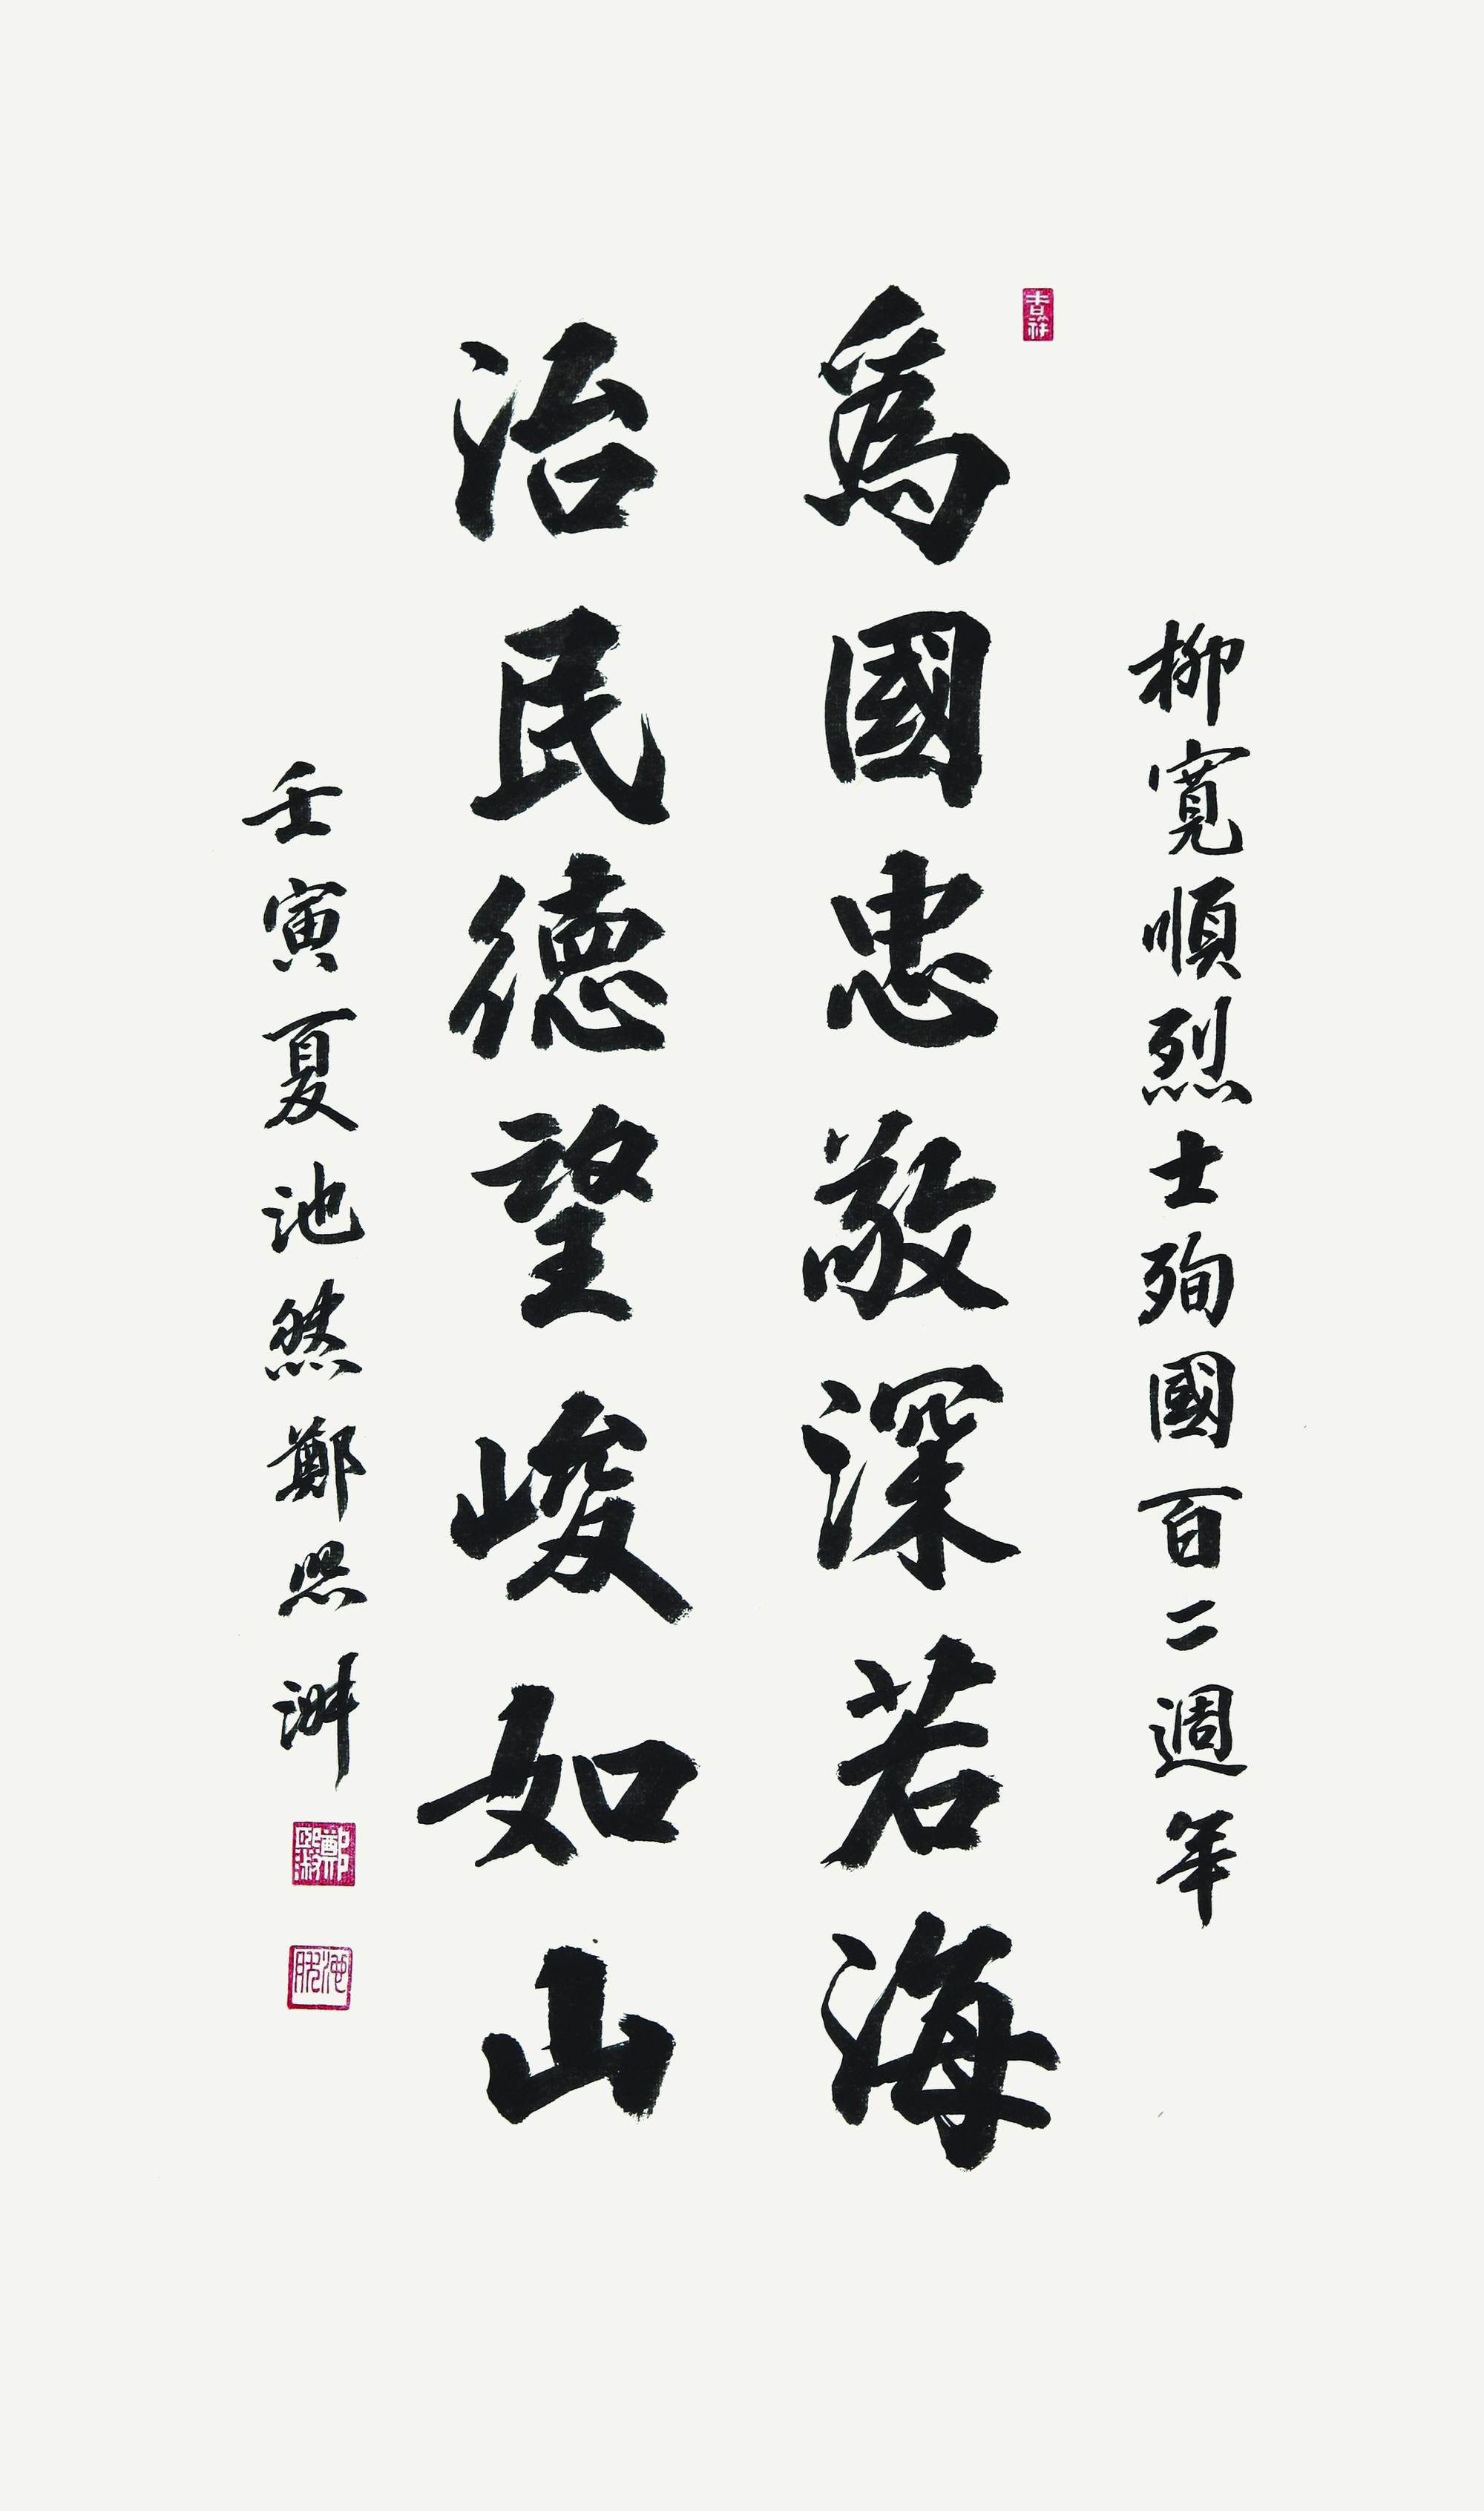 柳寬順烈士殉國百二週年
吉祥
爲國忠敬深若海
治民德望峻如山
壬寅夏池然鄭熙淑
鄭熙淑